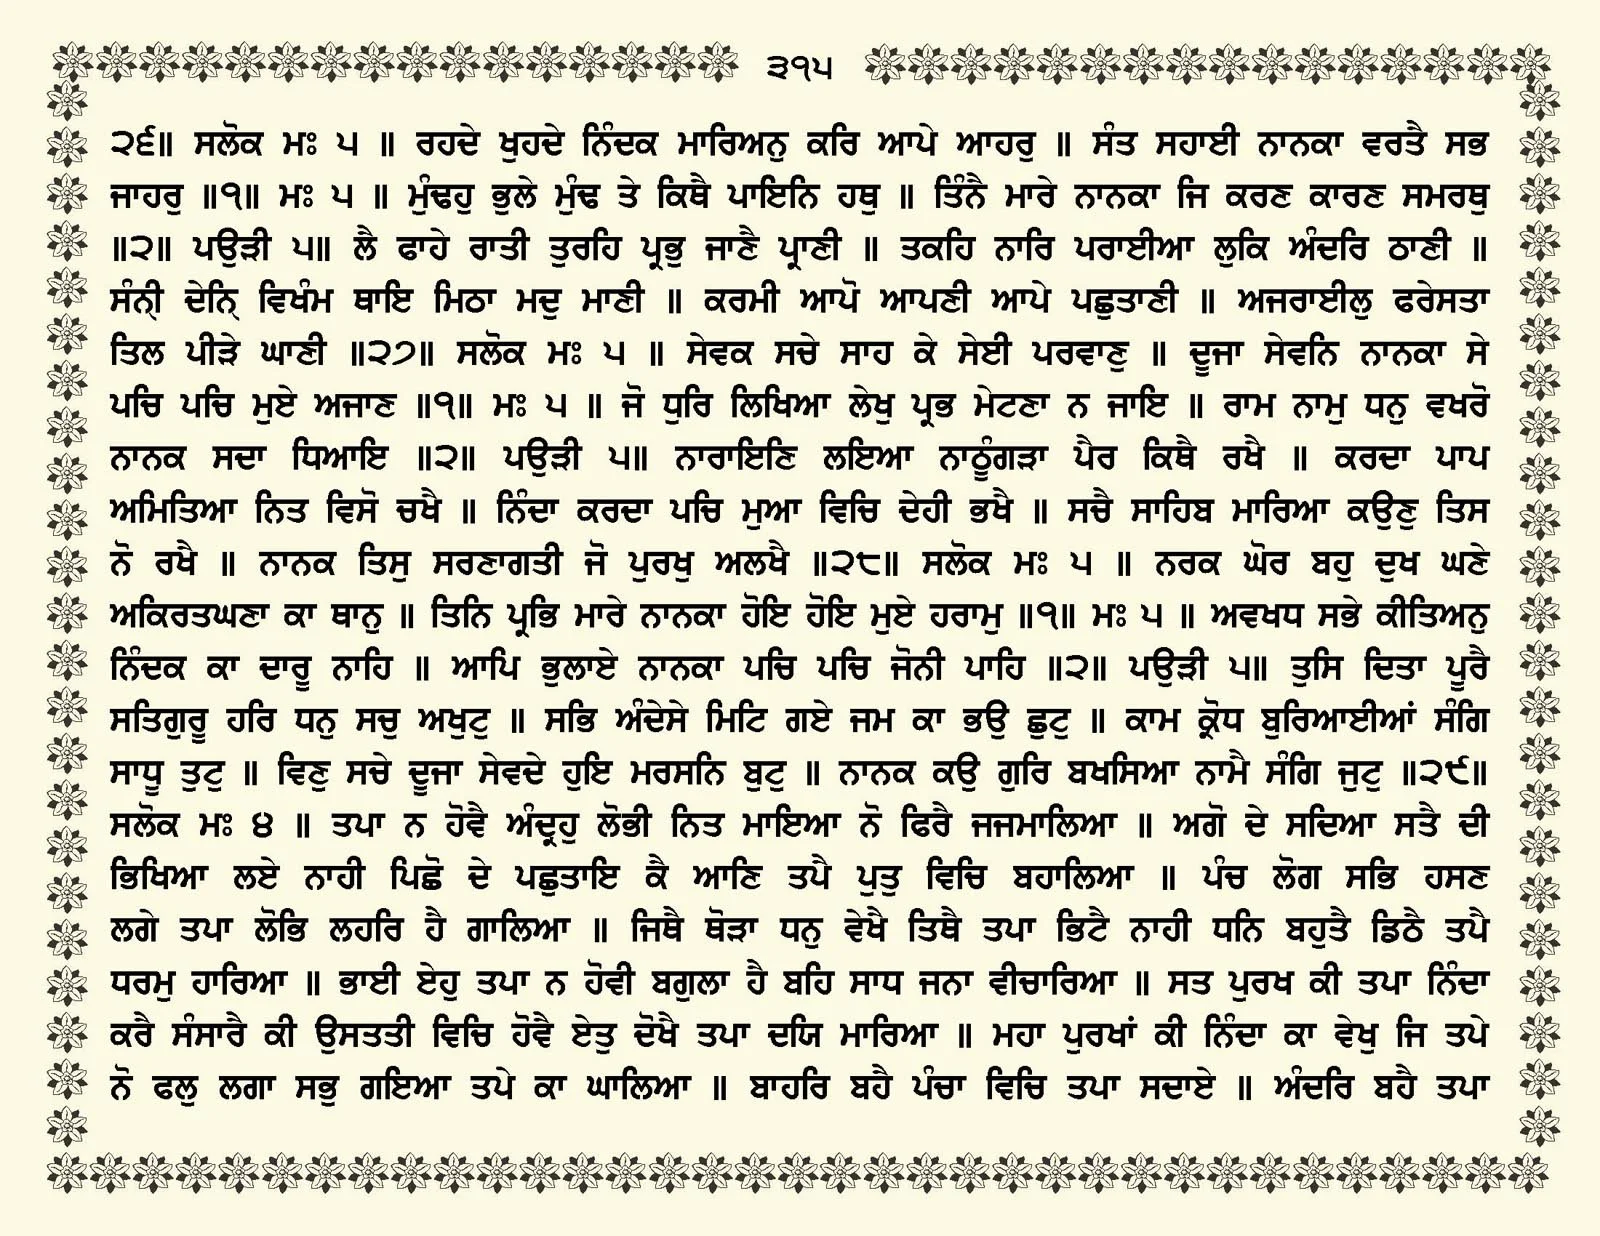 ੩੧੫
੨੬॥ ਸਲੋਕ ਮਃ ੫ ॥ ਰਹਦੇ ਖੁਹਦੇ ਨਿੰਦਕ ਮਾਰਿਅਨੁ ਕਰਿ ਆਪੇ ਆਹਰੁ ॥ ਸੰਤ ਸਹਾਈ ਨਾਨਕਾ ਵਰਤੈ ਸਭ
ਜਾਹਰੁ ॥੧॥ ਮਃ ੫ ॥ ਮੁੰਢਹੁ ਭੁਲੇ ਮੁੰਢ ਤੇ ਕਿਥੈ ਪਾਇਨਿ ਹਥੁ ॥ ਤਿੰਨੈ ਮਾਰੇ ਨਾਨਕਾ ਜਿ ਕਰਣ ਕਾਰਣ ਸਮਰਥੁ
॥੨॥ ਪਉੜੀ ੫॥ ਲੈ ਫਾਹੇ ਰਾਤੀ ਤੁਰਹਿ ਪ੍ਰਭੁ ਜਾਣੈ ਪ੍ਰਾਣੀ ॥ ਤਕਹਿ ਨਾਰਿ ਪਰਾਈਆ ਲੁਕਿ ਅੰਦਰਿ ਠਾਣੀ ॥
ਸੰਨੀ੍ ਦੇਨਿ੍ ਵਿਖੰਮ ਥਾਇ ਮਿਠਾ ਮਦੁ ਮਾਣੀ ॥ ਕਰਮੀ ਆਪੋ ਆਪਣੀ ਆਪੇ ਪਛੁਤਾਣੀ ॥ ਅਜਰਾਈਲੁ ਫਰੇਸਤਾ
ਤਿਲ ਪੀੜੇ ਘਾਣੀ ॥੨੭॥ ਸਲੋਕ ਮਃ ੫ ॥ ਸੇਵਕ ਸਚੇ ਸਾਹ ਕੇ ਸੇਈ ਪਰਵਾਣੁ ॥ ਦੂਜਾ ਸੇਵਨਿ ਨਾਨਕਾ ਸੇ
ਪਚਿ ਪਚਿ ਮੁਏ ਅਜਾਣ ॥੧॥ ਮਃ ੫ ॥ ਜੋ ਧੁਰਿ ਲਿਖਿਆ ਲੇਖੁ ਪ੍ਰਭ ਮੇਟਣਾ ਨ ਜਾਇ ॥ ਰਾਮ ਨਾਮੁ ਧਨੁ ਵਖਰੋ
ਨਾਨਕ ਸਦਾ ਧਿਆਇ ॥੨॥ ਪਉੜੀ ੫॥ ਨਾਰਾਇਣਿ ਲਇਆ ਨਾਠੂੰਗੜਾ ਪੈਰ ਕਿਥੈ ਰਖੈ ॥ ਕਰਦਾ ਪਾਪ
ਅਮਿਤਿਆ ਨਿਤ ਵਿਸੋ ਚਖੈ ॥ ਨਿੰਦਾ ਕਰਦਾ ਪਚਿ ਮੁਆ ਵਿਚਿ ਦੇਹੀ ਭਖੈ ॥ ਸਚੈ ਸਾਹਿਬ ਮਾਰਿਆ ਕਉਣੁ ਤਿਸ
ਨੋ ਰਖੈ ॥ ਨਾਨਕ ਤਿਸੁ ਸਰਣਾਗਤੀ ਜੋ ਪੁਰਖੁ ਅਲਖੈ ॥੨੮॥ ਸਲੋਕ ਮਃ ੫ ॥ ਨਰਕ ਘੋਰ ਬਹੁ ਦੁਖ ਘਣੇ
ਅਕਿਰਤਘਣਾ ਕਾ ਥਾਨੁ ॥ ਤਿਨਿ ਪ੍ਰਭਿ ਮਾਰੇ ਨਾਨਕਾ ਹੋਇ ਹੋਇ ਮੁਏ ਹਰਾਮੁ ॥੧॥ ਮਃ ੫ ॥ ਅਵਖਧ ਸਭੇ ਕੀਤਿਅਨੁ
ਨਿੰਦਕ ਕਾ ਦਾਰੂ ਨਾਹਿ ॥ ਆਪਿ ਭੁਲਾਏ ਨਾਨਕਾ ਪਚਿ ਪਚਿ ਜੋਨੀ ਪਾਹਿ ॥੨॥ ਪਉੜੀ ੫॥ ਤੁਸਿ ਦਿਤਾ ਪੂਰੈ
ਸਤਿਗੁਰੂ ਹਰਿ ਧਨੁ ਸਚੁ ਅਖੁਟੁ ॥ ਸਭਿ ਅੰਦੇਸੇ ਮਿਟਿ ਗਏ ਜਮ ਕਾ ਭਉ ਛੁਟੁ ॥ ਕਾਮ ਕ੍ਰੋਧ ਬੁਰਿਆਈਆਂ ਸੰਗਿ
ਸਾਧੂ ਤੁਟੁ ॥ ਵਿਣੁ ਸਚੇ ਦੂਜਾ ਸੇਵਦੇ ਹੁਇ ਮਰਸਨਿ ਬੁਟੁ ॥ ਨਾਨਕ ਕਉ ਗੁਰਿ ਬਖਸਿਆ ਨਾਮੈ ਸੰਗਿ ਜੁਟੁ ॥੨੯॥
ਸਲੋਕ ਮਃ ੪ ॥ ਤਪਾ ਨ ਹੋਵੈ ਅੰਦ੍ਰਹੁ ਲੋਭੀ ਨਿਤ ਮਾਇਆ ਨੋ ਫਿਰੈ ਜਜਮਾਲਿਆ ॥ ਅਗੋ ਦੇ ਸਦਿਆ ਸਤੈ ਦੀ
ਭਿਖਿਆ ਲਏ ਨਾਹੀ ਪਿਛੋ ਦੇ ਪਛੁਤਾਇ ਕੈ ਆਣਿ ਤਪੈ ਪੁਤੁ ਵਿਚਿ ਬਹਾਲਿਆ ॥ ਪੰਚ ਲੋਗ ਸਭਿ ਹਸਣ
ਲਗੇ ਤਪਾ ਲੋਭਿ ਲਹਰਿ ਹੈ ਗਾਲਿਆ ॥ ਜਿਥੈ ਥੋੜਾ ਧਨੁ ਵੇਖੈ ਤਿਥੈ ਤਪਾ ਭਿਟੈ ਨਾਹੀ ਧਨਿ ਬਹੁਤੈ ਡਿਠੈ ਤਪੈ
ਧਰਮੁ ਹਾਰਿਆ ॥ ਭਾਈ ਏਹੁ ਤਪਾ ਨ ਹੋਵੀ ਬਗੁਲਾ ਹੈ ਬਹਿ ਸਾਧ ਜਨਾ ਵੀਚਾਰਿਆ ॥ ਸਤ ਪੁਰਖ ਕੀ ਤਪਾ ਨਿੰਦਾ
ਕਰੈ ਸੰਸਾਰੈ ਕੀ ਉਸਤਤੀ ਵਿਚਿ ਹੋਵੈ ਏਤੁ ਦੋਖੈ ਤਪਾ ਦਯਿ ਮਾਰਿਆ ॥ ਮਹਾ ਪੁਰਖਾਂ ਕੀ ਨਿੰਦਾ ਕਾ ਵੇਖੁ ਜਿ ਤਪੇ
ਨੋ ਫਲੁ ਲਗਾ ਸਭੁ ਗਇਆ ਤਪੇ ਕਾ ਘਾਲਿਆ ॥ ਬਾਹਰਿ ਬਹੈ ਪੰਚਾ ਵਿਚਿ ਤਪਾ ਸਦਾਏ ॥ ਅੰਦਰਿ ਬਹੈ ਤਪਾ